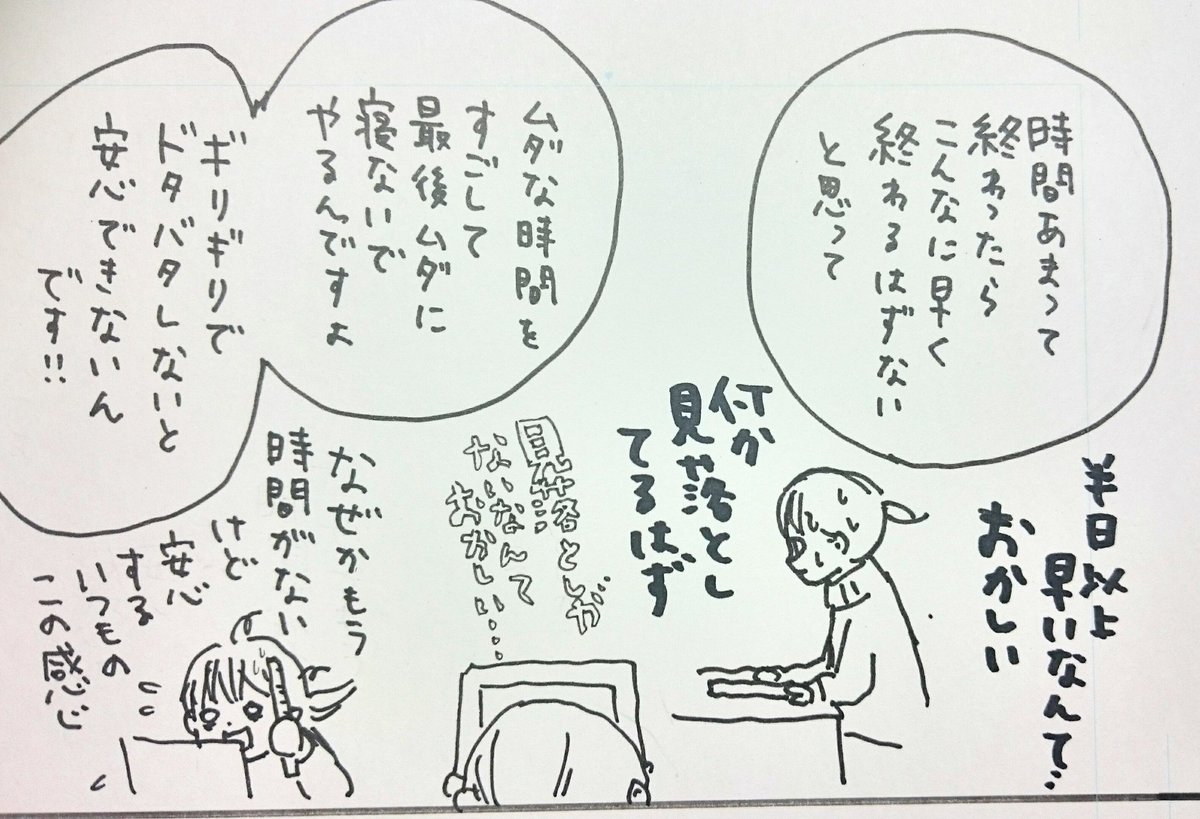 時間あまって
終わったら
こんなに早く
終わるはずない
と思って
半日以上
早いなんて…
おかしい
何か
見落とし
てるはず
ムダな時間を
すごして
最後ムダに
寝ないで
やるんですよ
見落としが
ないなんて
おかしい…
ギリギリで
ドタバタしないと
安心できないん
です!!
なぜかもう
時間がない
けど
安心
する
いつもの
この感じ